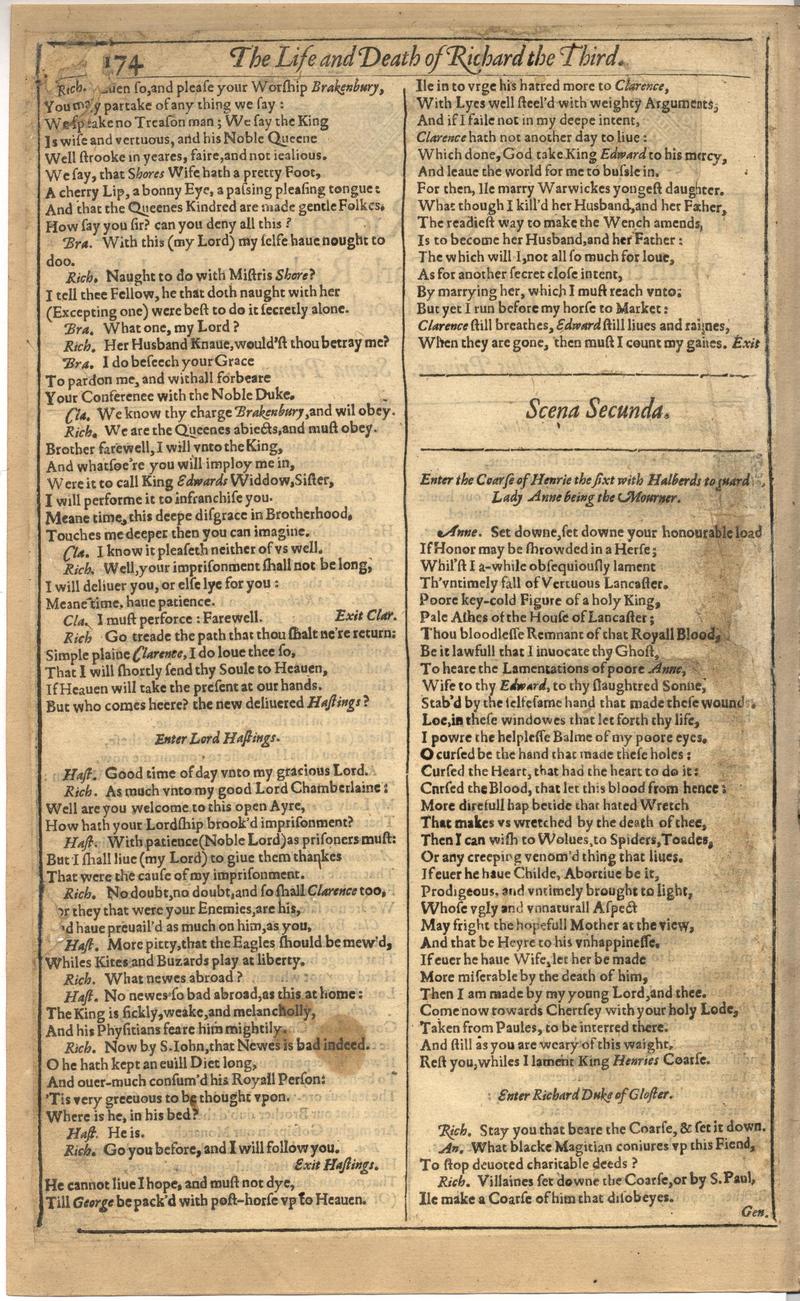 174
The Life and Death of Richard the Third.
Rich. uen ſo,and pleaſe your Worſhip Brakenbury,
You may partake of any thing we ſay :
We ſpeake no Treaſon man ; We ſay the King
Is wiſe and vertuous, and his Noble Queene
Well ſtrooke in yeares, faire,and not iealious.
We ſay, that Shores Wife hath a pretty Foot,
A cherry Lip, a bonny Eye, a paſsing pleaſing tongue:
And that the Queenes Kindred are made gentle Folkes.
How ſay you ſir? can you deny all this ?
Bra. With this (my Lord) my ſelfe haue nought to
doo.
Rich. Naught to do with Miſtris Shore?
I tell thee Fellow, he that doth naught with her
(Excepting one) were beſt to do it ſecretly alone.
Bra. What one, my Lord ?
Rich. Her Husband Knaue,would'ſt thou betray me?
Bra. I do beſeech your Grace
To pardon me, and withall forbeare
Your Conference with the Noble Duke.
Cla. We know thy charge Brakenbury,and wil obey.
Rich. We are the Queenes abiects,and muſt obey.
Brother farewell, I will vnto the King,
And whatſoe're you will imploy me in,
Were it to call King Edwards Widdow,Siſter,
I will performe it to infranchiſe you.
Meane time, this deepe diſgrace in Brotherhood,
Touches me deeper then you can imagine.
Cla. I know it pleaſeth neither of vs well.
Rich. Well,your impriſonment ſhall not be long,
I will deliuer you, or elſe lye for you :
Meane time, haue patience.
Cla. I muſt perforce : Farewell. Exit Clar.
Rich Go treade the path that thou ſhalt ne're return:
Simple plaine Clarence, I do loue thee ſo,
That I will ſhortly ſend thy Soule to Heauen,
If Heauen will take the preſent at our hands.
But who comes heere? the new deliuered Haſtings ?
Enter Lord Haſtings.
Haſt. Good time of day vnto my gracious Lord.
Rich. As much vnto my good Lord Chamberlaine :
Well are you welcome to this open Ayre,
How hath your Lordſhip brook'd impriſonment?
Haſt. With patience(Noble Lord)as priſoners muſt:
But I ſhall liue (my Lord) to giue them thankes
That were the cauſe of my impriſonment.
Rich. No doubt,no doubt,and ſo ſhall Clarence too,
or they that were your Enemies,are his,
'd haue preuail'd as much on him,as you,
Haſt. More pitty,that the Eagles ſhould be mew'd,
Whiles Kites and Buzards play at liberty.
Rich. What newes abroad ?
Haſt. No newes ſo bad abroad,as this at home :
The King is ſickly,weake,and melancholly,
And his Phyſitians feare him mightily.
Rich. Now by S.Iohn,that Newes is bad indeed.
O he hath kept an euill Diet long,
And ouer-much conſum'd his Royall Perſon:
'Tis very greeuous to be thought vpon.
Where is he, in his bed?
Haſt. He is.
Rich. Go you before, and I will follow you.
Exit Haſtings.
He cannot liue I hope, and muſt not dye,
Till George be pack'd with poſt-horſe vp to Heauen.
Ile in to vrge his hatred more to Clarence,
With Lyes well ſteel'd with weighty Arguments,
And if I faile not in my deepe intent,
Clarence hath not another day to liue :
Which done, God take King Edward to his mercy,
And leaue the world for me to buſsle in.
For then, Ile marry Warwickes yongeſt daughter.
What though I kill'd her Husband,and her Father,
The readieſt way to make the Wench amends,
Is to become her Husband,and her Father :
The which will I,not all ſo much for loue,
As for another ſecret cloſe intent,
By marrying her, which I muſt reach vnto;
But yet I run before my horſe to Market :
Clarence ſtill breathes, Edward ſtill liues and raignes,
When they are gone, then muſt I count my gaines. Exit
Scena Secunda.
Enter the Coarſe of Henrie the ſixt with Halberds to guard
Lady Anne being the Mourner.
Anne. Set downe,ſet downe your honourable load
If Honor may be ſhrowded in a Herſe ;
Whil'ſt I a-while obſequiouſly lament
Th'vntimely fall of Vertuous Lancaſter.
Poore key-cold Figure of a holy King,
Pale Aſhes of the Houſe of Lancaſter ;
Thou bloodleſſe Remnant of that Royall Blood,
Be it lawfull that I inuocate thy Ghoſt,
To heare the Lamentations of poore Anne,
Wife to thy Edward, to thy ſlaughtred Sonne,
Stab'd by the ſelfeſame hand that made theſe wound
Loe,in theſe windowes that let forth thy life,
I powre the helpleſſe Balme of my poore eyes.
O curſed be the hand that made theſe holes :
Curſed the Heart, that had the heart to do it :
Curſed the Blood, that let this blood from hence :
More direfull hap betide that hated Wretch
That makes vs wretched by the death of thee,
Then I can wiſh to Wolues, to Spiders,Toades,
Or any creeping venom'd thing that liues.
If euer he haue Childe, Abortiue be it,
Prodigeous, and vntimely brought to light,
Whoſe vgly and vnnaturall Aſpect
May fright the hopefull Mother at the view,
And that be Heyre to his vnhappineſſe.
If euer he haue Wife, let her be made
More miſerable by the death of him,
Then I am made by my young Lord,and thee.
Come now towards Chertſey with your holy Lode,
Taken from Paules, to be interred there.
And ſtill as you are weary of this waight,
Reſt you,whiles I lament King Henries Coarſe.
Enter Richard Duke of Gloſter.
Rich. Stay you that beare the Coarſe, & ſet it down.
An. What blacke Magitian coniures vp this Fiend,
To ſtop deuoted charitable deeds ?
Rich. Villaines ſet downe the Coarſe,or by S.Paul,
Ile make a Coarſe of him that diſobeyes.
Gen.